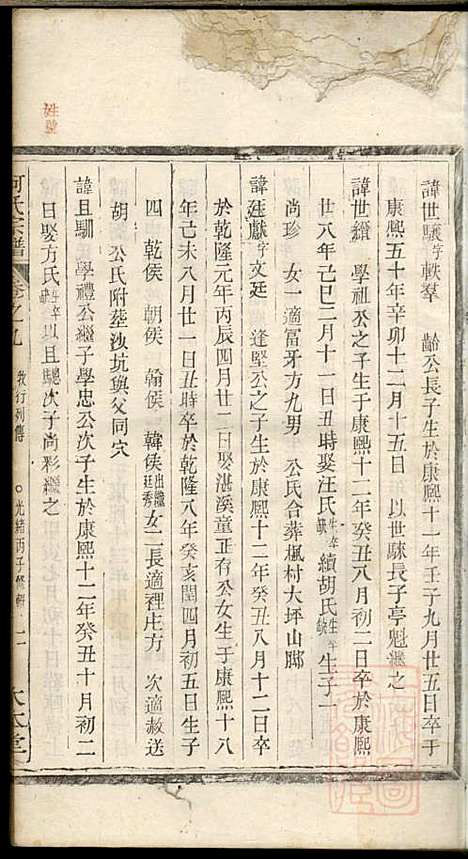 諱世驤字軼羣 齡公長子生於康熙十一年壬子九月廿五日卒于
康熙五十年辛卯十二月十五日 以世駷長子亭魁繼之
諱世纘 學祖公之子生于康熙十二年癸丑八月初二日卒於康熙
廿八年己巳二月十一日丑時娶汪氏生卒缺續胡氏生卒缺生子一
尚珍 女一適冨牙方九男 公氏合葬楓村大坪山脚
諱廷獻字文廷 逢堅公之子生於康熙十二年癸丑八月十二日卒
於乾隆元年丙辰四月廿二日娶湛溪童正有公女生于康熙十八
年己未八月廿一日丑時卒於乾隆八年癸亥閏四月初五日生子
四 乾侯 朝侯 翰侯 韓侯出繼廷秀女二長適裡庄方 次適敖送
胡 公氏附塟汝坑與父同穴
諱且馴 學禮公繼子學忠公次子生於康熙十二年癸丑十月初二
日娶方氏生卒缺以且驄次子尚彩繼之
何氏宗譜 卷之九 敦行列傳 ○光緒丙子修輯 十一 大本堂
姓塋